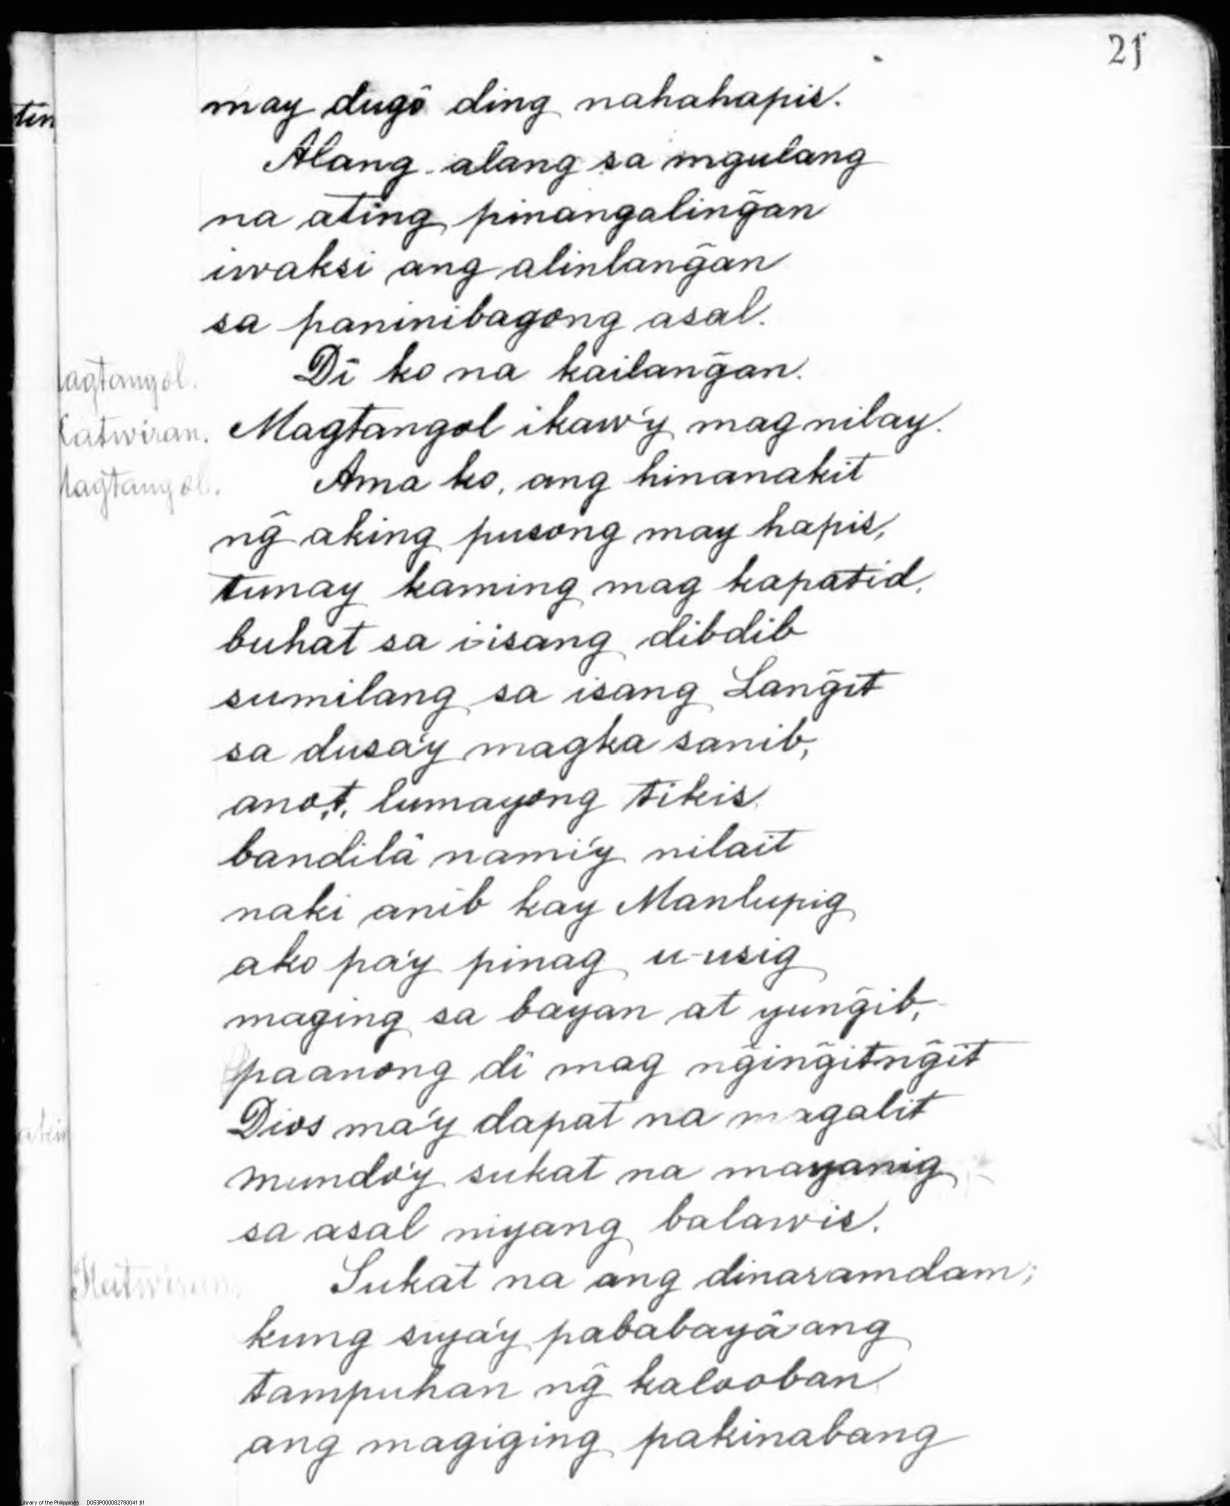 21
may dugô ding nahahapis.
Alang-alang sa mgulang
na ating pinangalinĝan
iwaksi ang alinlanĝan
sa paninibagong asal.
agtangol. Dî ko na kailanĝan.
Katwiran. Magtangol ikaw'y mag nilay.
Magtangol. Ama ko, ang hinanakit
nĝ aking pusong may hapis,
tunay kaming mag kapatid,
buhat sa i-isang dibdib
sumilang sa isang Lanĝit
sa dusa'y magka sanib,
ano,t, lumayong tikis
bandilâ nami'y nilait
naki anib kay Manlupig
ako pa'y pinag u-usig
maging sa bayan at yunĝib,
paanong di mag nĝinĝitnĝit
Dios ma'y dapat na magalit
mundo'y sukat na mayanig
sa asal niyang balawis.
Katwiran. Sukat na ang dinaramdam;
kung siya'y pababayâ ang
tampuhan nĝ kalooban
ang magiging pakinabang
Library of the Philippines